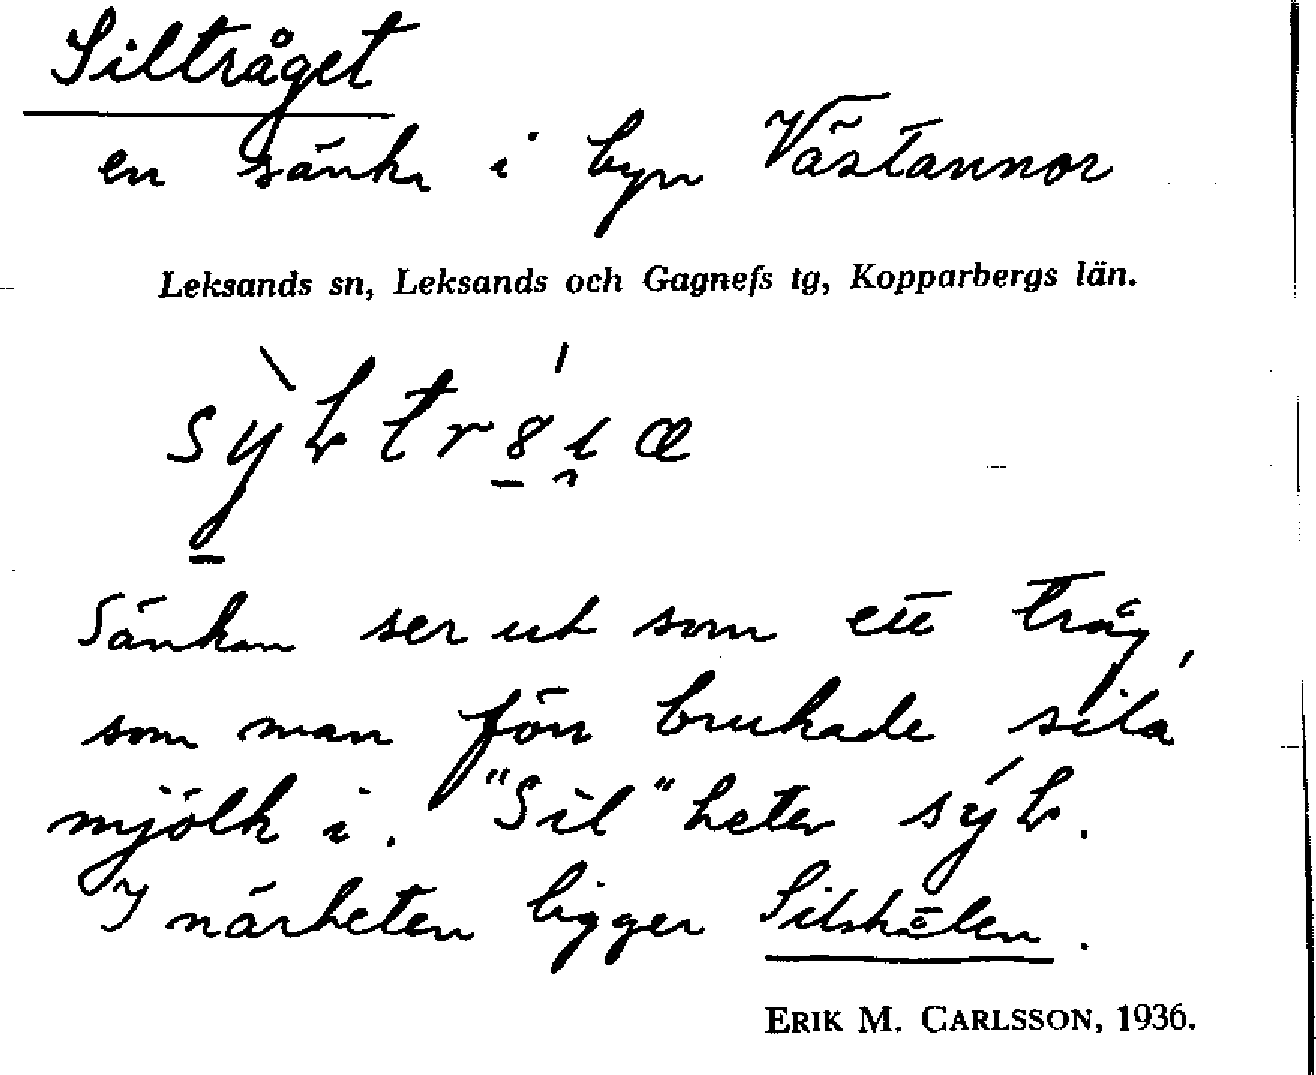 Siltråget
en sänka i byn Västannor
Leksands sn, Leksands och Gagnefs tg, Kopparbergs län.
Sänkan ser ut som ett tråg,
som man förr brukade sila
mjölk i. "Sil" heter
I närheten ligger Silskålen.
ERIK M. CARLSSON, 1936.